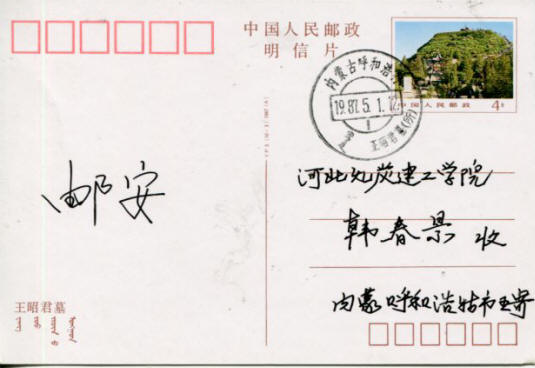 中国人民邮政
明信片
中国人民邮政
4分
内蒙古呼和浩
1987.5.1.12
王昭君墓
河北
建工学院
韩春景 收
邮安
内蒙呼和浩特市王寄
王昭君墓